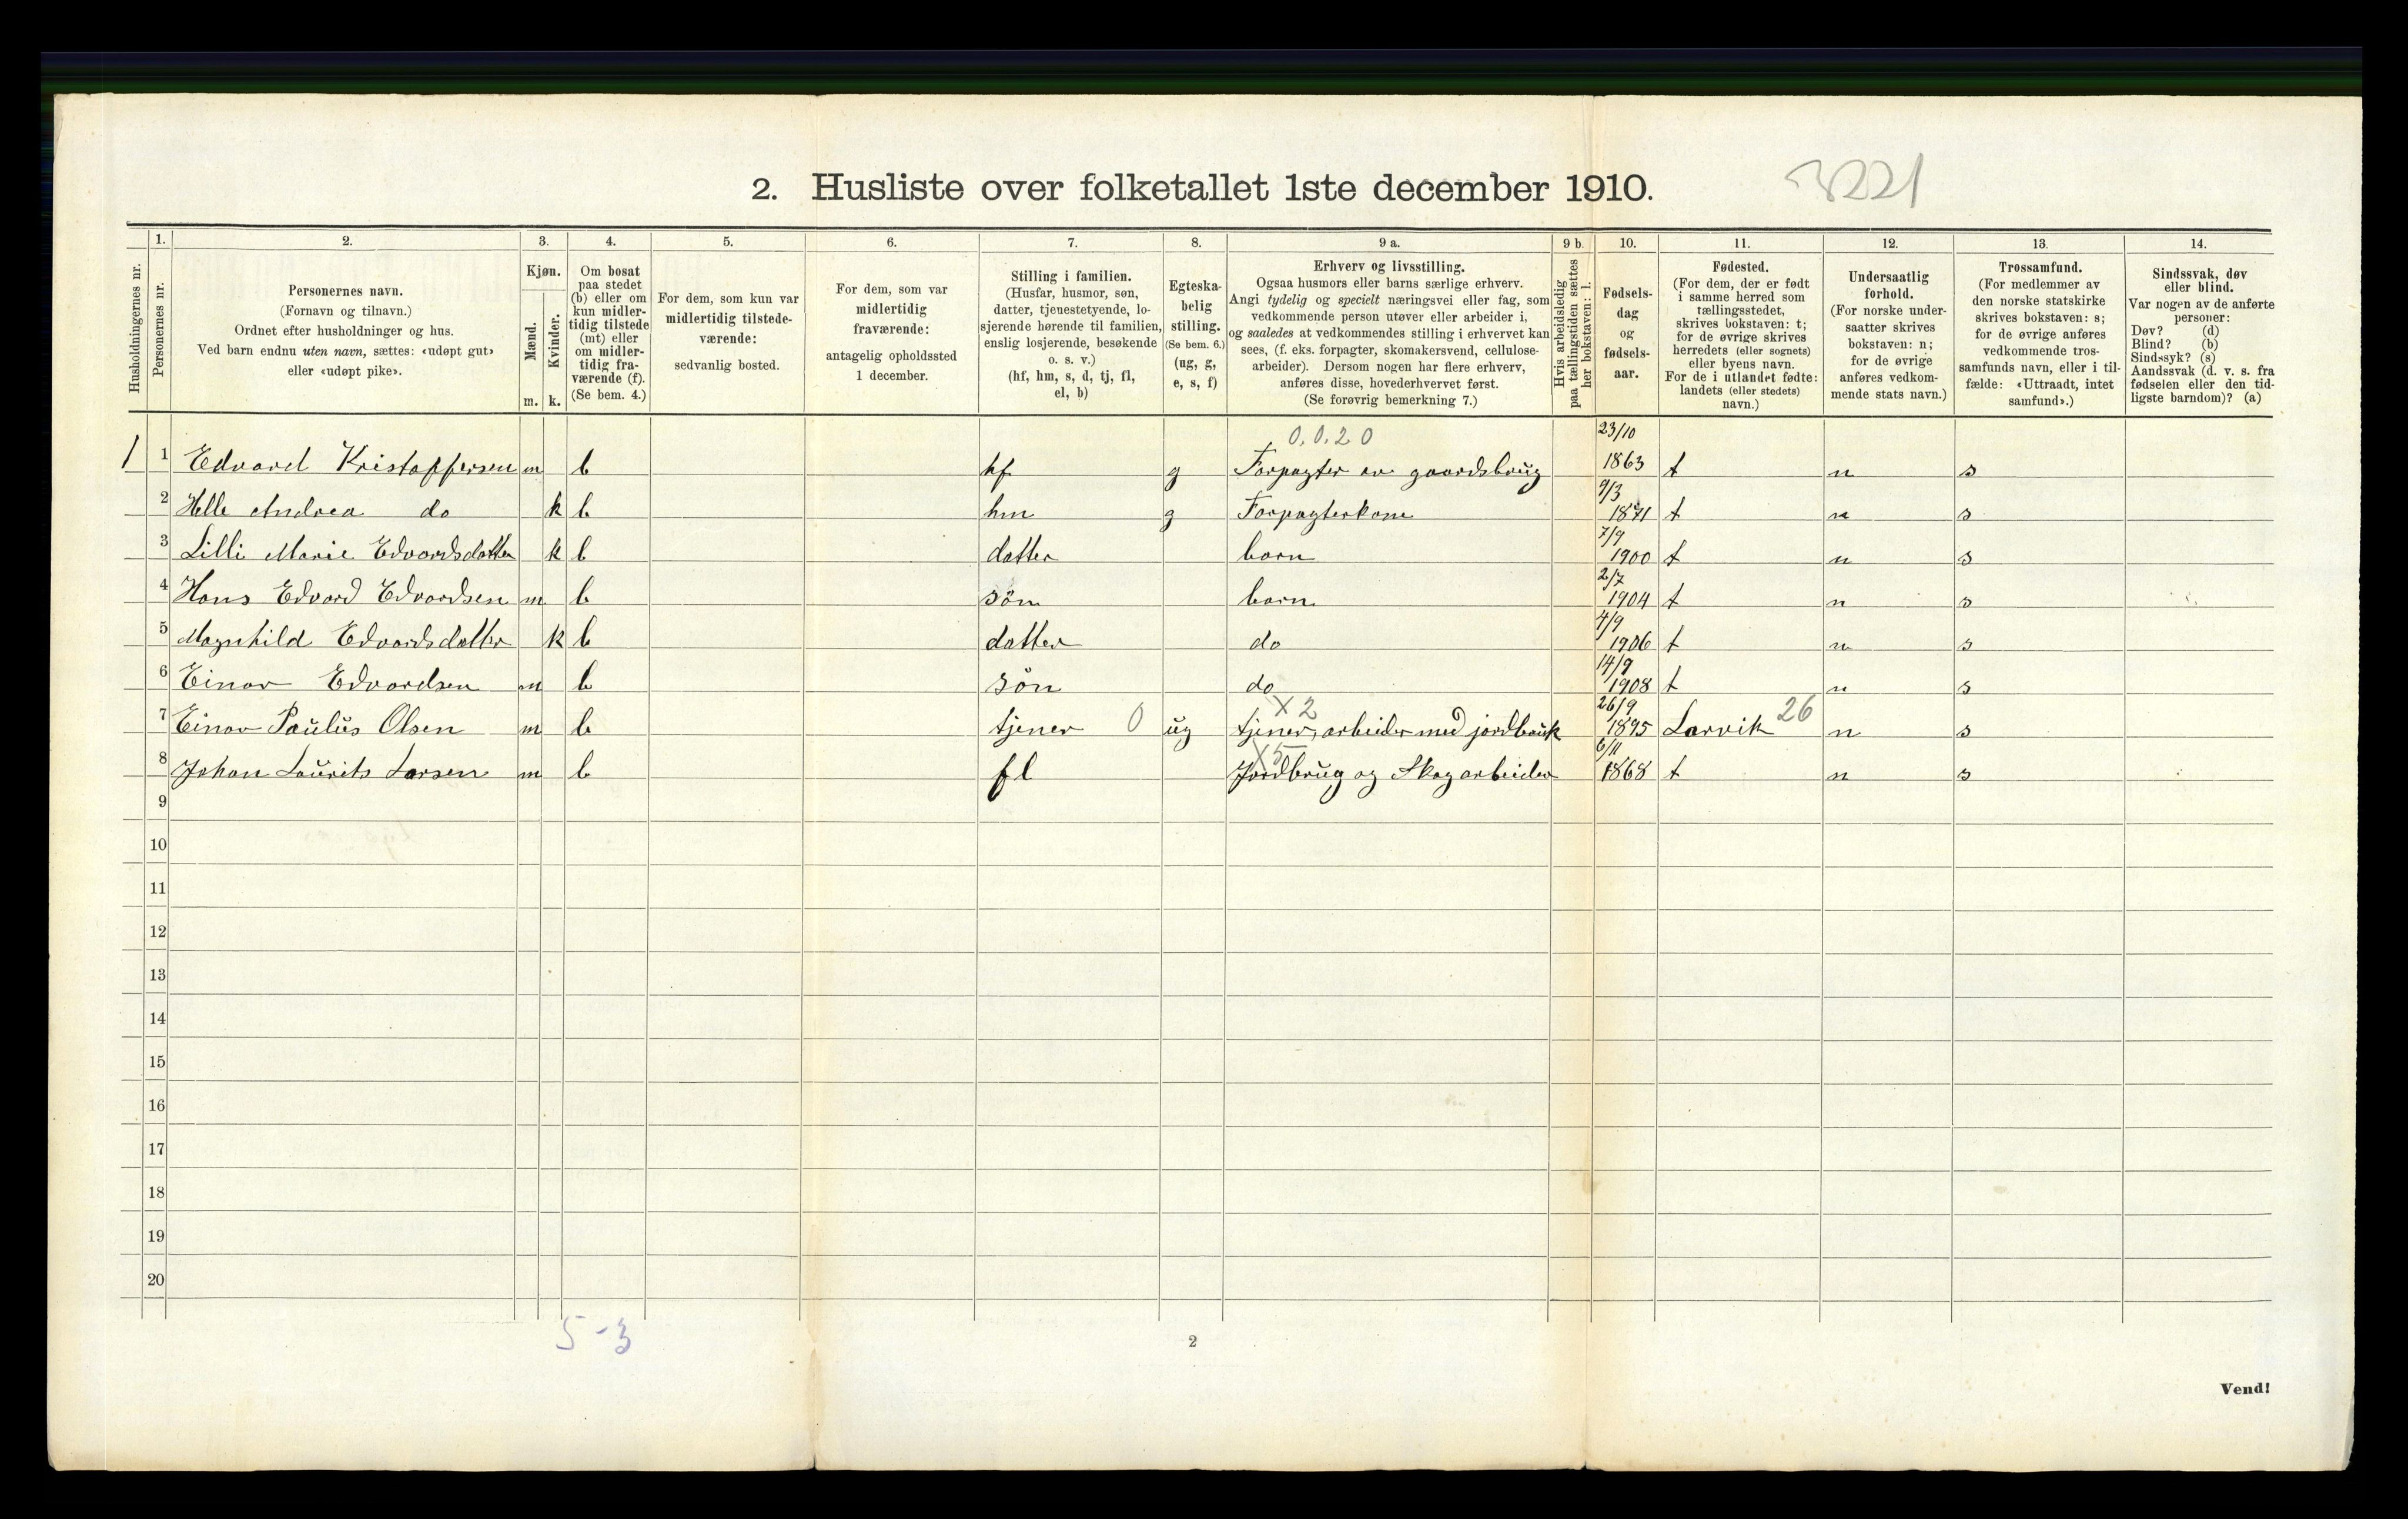 2. Husliste over folketallet 1ste december 1910.
3221
Husholdningernes nr.
1.
Personernes nr.
2.
Personernes navn.
(Fornavn og tilnavn.)
Ordnet efter husholdninger og hus.
Ved barn endnu uten navn, sættes: «udøpt gut»
eller «udøpt pike».
3.
Kjøn.
Mænd.
Kvinder.
m. k.
4.
Om bosat
paa stedet
(b) eller om
kun midler-
tidig tilstede
(mt) eller
om midler-
tidig fra-
værende (f).
(Se bem. 4.)
5.
For dem, som kun var
midlertidig tilstede-
værende:
sedvanlig bosted.
6.
For dem, som var
midlertidig
fraværende:
antagelig opholdssted
1 december.
7.
Stilling i familien.
(Husfar, husmor, søn,
datter, tjenestetyende, lo-
sjerende hørende til familien,
enslig losjerende, besøkende
o. s. v.)
(hf, hm, s, d, tj, fl,
el, b)
8.
Egteska-
belig
stilling.
(Se bem. 6.)
(ug, g,
e, s, f)
9 a.
Erhverv og livsstilling.
Ogsaa husmors eller barns særlige erhverv.
Angi tydelig og specielt næringsvei eller fag, som
vedkommende person utøver eller arbeider i,
og saaledes at vedkommendes stilling i erhvervet kan
sees, (f. eks. forpagter, skomakersvend, cellulose-
arbeider). Dersom nogen har flere erhverv,
anføres disse, hovederhvervet først.
(Se forøvrig bemerkning 7.)
9 b.
Hvis arbeidsledig
paa tællingstiden sættes
her bokstaven: l.
10.
Fødsels-
dag
og
fødsels-
aar.
11.
Fødested.
(For dem, der er født
i samme herred som
tællingsstedet,
skrives bokstaven: t;
for de øvrige skrives
herredets (eller sognets)
eller byens navn.
For de i utlandet fødte:
landets (eller stedets)
navn.)
12.
Undersaatlig
forhold.
(For norske under-
saatter skrives
bokstaven: n;
for de øvrige
anføres vedkom-
mende stats navn.)
13.
Trossamfund.
(For medlemmer av
den norske statskirke
skrives bokstaven: s;
for de øvrige anføres
vedkommende tros-
samfunds navn, eller i til-
fælde: «Uttraadt, intet
samfund».)
14.
Sindssvak, døv
eller blind.
Var nogen av de anførte
personer:
Døv? (d)
Blind? (b)
Sindssyk? (s)
Aandssvak (d. v. s. fra
fødselen eller den tid-
ligste barndom)? (a)
0.0.20 23/10
1 1 Edvard Kristoffersen m b hf g Forpagter av gaardsbrug 1863 t n s
9/3
2 Helle Andrea do k b hm g Forpagterkone 1871 t n s
7/9
3 Lilli Marie Edvardsdatter k b datter barn 1900 t n s
2/7
4 Hans Edvard Edvardsen m b sön barn 1904 t n s
4/9
5 Magnhild Edvardsdatter k b datter do 1906 t n s
14/9
6 Einar Edvardsen m b sön do 1908 t n s
x 2 26/9
7 Einar Paulus Olsen m b tjener 0 ug tjener, arbeider med jordbruk 1895 Larvik 26 n s
x5 6/11
8 Johan Laurits Larsen m b fl Jordbrug og Skogarbeider 1868 t n s
9
10
11
12
13
14
15
16
17
18
19
20
5 - 3
2
Vend!